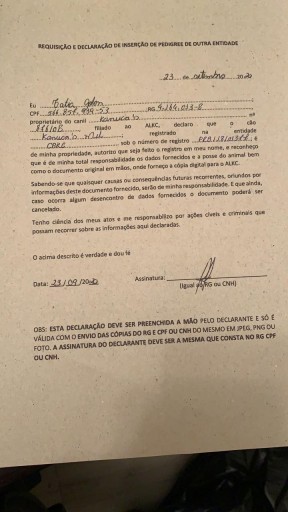 REQUISIÇÃO E DECLARAÇÃO DE INSERÇÃO DE PEDIGREE DE OUTRA ENTIDADE
23 de setembro de 20
Eu
CPF RG
proprietário do canil Kanuca's nº
filiado ao ALKC, declaro que o cão
Kanuca's registrado na entidade
CBKC sob o número de registro é
de minha propriedade, autorizo que seja feito o registro em meu nome, e reconheço
que é de minha total responsabilidade os dados fornecidos e a posse do animal bem
como o documento original em mãos, onde forneço a cópia digital para o ALKC.
Sabendo-se que quaisquer causas ou consequências futuras recorrentes, oriundos por
informações deste documento fornecido, serão de minha responsabilidade. E que ainda,
caso ocorra algum desencontro de dados fornecidos o documento poderá ser
cancelado.
Tenho ciência dos meus atos e me responsabilizo por ações cíveis e criminais que
possam recorrer sobre as informações aqui declaradas.
O acima descrito é verdade e dou fé
Data: 23/09/2020 Assinatura:
(Igual ao RG ou CNH)
OBS: ESTA DECLARAÇÃO DEVE SER PREENCHIDA A MÃO PELO DECLARANTE E SÓ É
VÁLIDA COM O ENVIO DAS CÓPIAS DO RG E CPF OU CNH DO MESMO EM JPEG, PNG OU
FOTO. A ASSINATURA DO DECLARANTE DEVE SER A MESMA QUE CONSTA NO RG CPF
OU CNH.